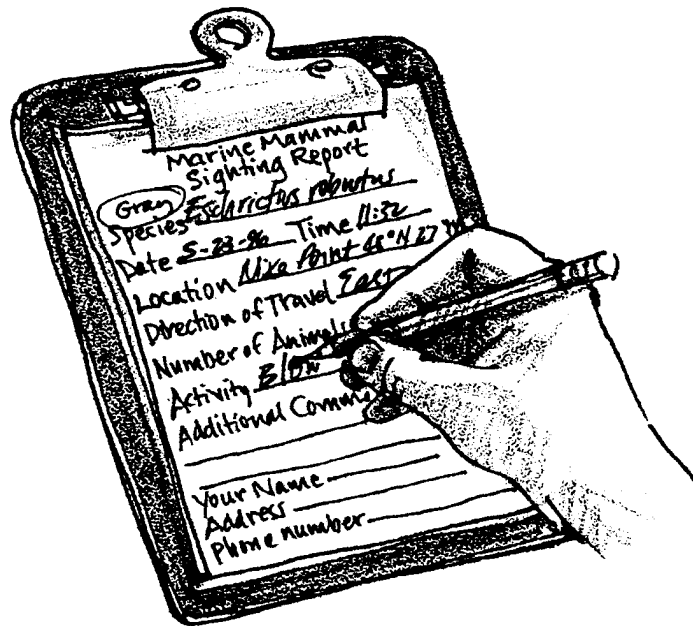 Marine Mammal
Sighting Report
Gray
Species Eschrictus robustus
Date 5-23-96 Time 11:32
Location Point 48°N 27
Direction of Travel East
Number of Animals
Activity Blow
Additional Comm
Your Name
Address
Phone number